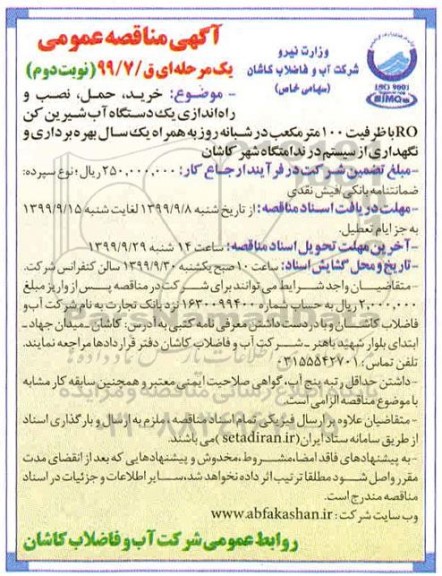 آگهی مناقصه عمومی
یک مرحله‌ای ق/۹۹/۷ (نوبت دوم)
وزارت نیرو
شرکت آب و فاضلاب کاشان
(سهامی خاص)
- موضوع: خرید، حمل، نصب و
راه‌اندازی یک دستگاه آب شیرین کن
RO با ظرفیت ۱۰۰ متر مکعب در شبانه روز به همراه یک سال بهره برداری و
نگهداری از سیستم در ندامتگاه شهر کاشان
-مبلغ تضمین شرکت در فرآیند ارجاع کار: ۲۵۰,۰۰۰,۰۰۰ ریال؛ نوع سپرده:
ضمانتنامه بانکی/فیش نقدی
-مهلت دریافت اسناد مناقصه: از تاریخ شنبه ۱۳۹۹/۹/۸ لغایت شنبه ۱۳۹۹/۹/۱۵
به جز ایام تعطیل.
-آخرین مهلت تحویل اسناد مناقصه: ساعت ۱۴ شنبه ۱۳۹۹/۹/۲۹
-تاریخ و محل گشایش اسناد: ساعت ۱۰ صبح یکشنبه ۱۳۹۹/۹/۳۰ سالن کنفرانس شرکت.
-متقاضیان واجد شرایط می توانند برای شرکت در مناقصه پس از واریز مبلغ
۲,۰۰۰,۰۰۰ ریال به حساب شماره ۱۶۳۰۰۹۹۴۰۰ نزد بانک تجارت به نام شرکت آب و
فاضلاب کاشان و با در دست داشتن معرفی نامه کتبی به آدرس: کاشان-میدان جهاد-
ابتدای بلوار شهید باهنر-شرکت آب و فاضلاب کاشان دفتر قراردادها مراجعه نمایند.
تلفن تماس: ۰۳۱۵۵۵۴۲۷۰۱
-داشتن حداقل رتبه پنج آب، گواهی صلاحیت ایمنی معتبر و همچنین سابقه کار مشابه
با موضوع مناقصه الزامی است.
-متقاضیان علاوه بر ارسال فیزیکی تمام اسناد مناقصه، ملزم به ارسال و بارگذاری اسناد
از طریق سامانه ستاد ایران (setadiran.ir) می باشند.
-به پیشنهادهای فاقد امضا،مشروط،مخدوش و پیشنهادهایی که بعد از انقضای مدت
مقرر واصل شود مطلقا ترتیب اثر داده نخواهد شد،سایر اطلاعات و جزئیات در اسناد
مناقصه مندرج است.
وب سایت شرکت: www.abfakashan.ir
روابط عمومی شرکت آب و فاضلاب کاشان